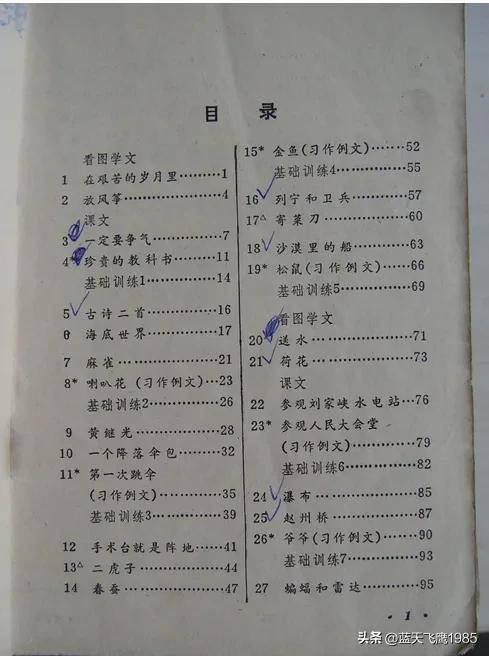 目 录
看图学文
1 在艰苦的岁月里………1
2 放风筝………4
课文
3 一定要争气………7
4* 珍贵的教科书………11
基础训练1………14
5 古诗二首………16
6 海底世界………17
7 麻雀………21
8* 喇叭花(习作例文)…23
基础训练2………26
9 黄继光………28
10 一个降落伞包………32
11* 第一次跳伞
(习作例文)………35
基础训练3………39
12 手术台就是阵地……41
13△ 二虎子………44
14 春蚕………47
15* 金鱼(习作例文)……52
基础训练4………55
16 列宁和卫兵………57
17△ 寄菜刀………60
18 沙漠里的船………63
19* 松鼠(习作例文)……66
基础训练5………69
看图学文
20 送水………71
21 荷花………73
课文
22 参观刘家峡水电站…76
23* 参观人民大会堂
(习作例文)………79
基础训练6………82
24 瀑布………85
25 赵州桥………87
26* 爷爷(习作例文)……90
基础训练7………93
27 蝙蝠和雷达………95
· 1 ·
头条 @蓝天飞鹰1985